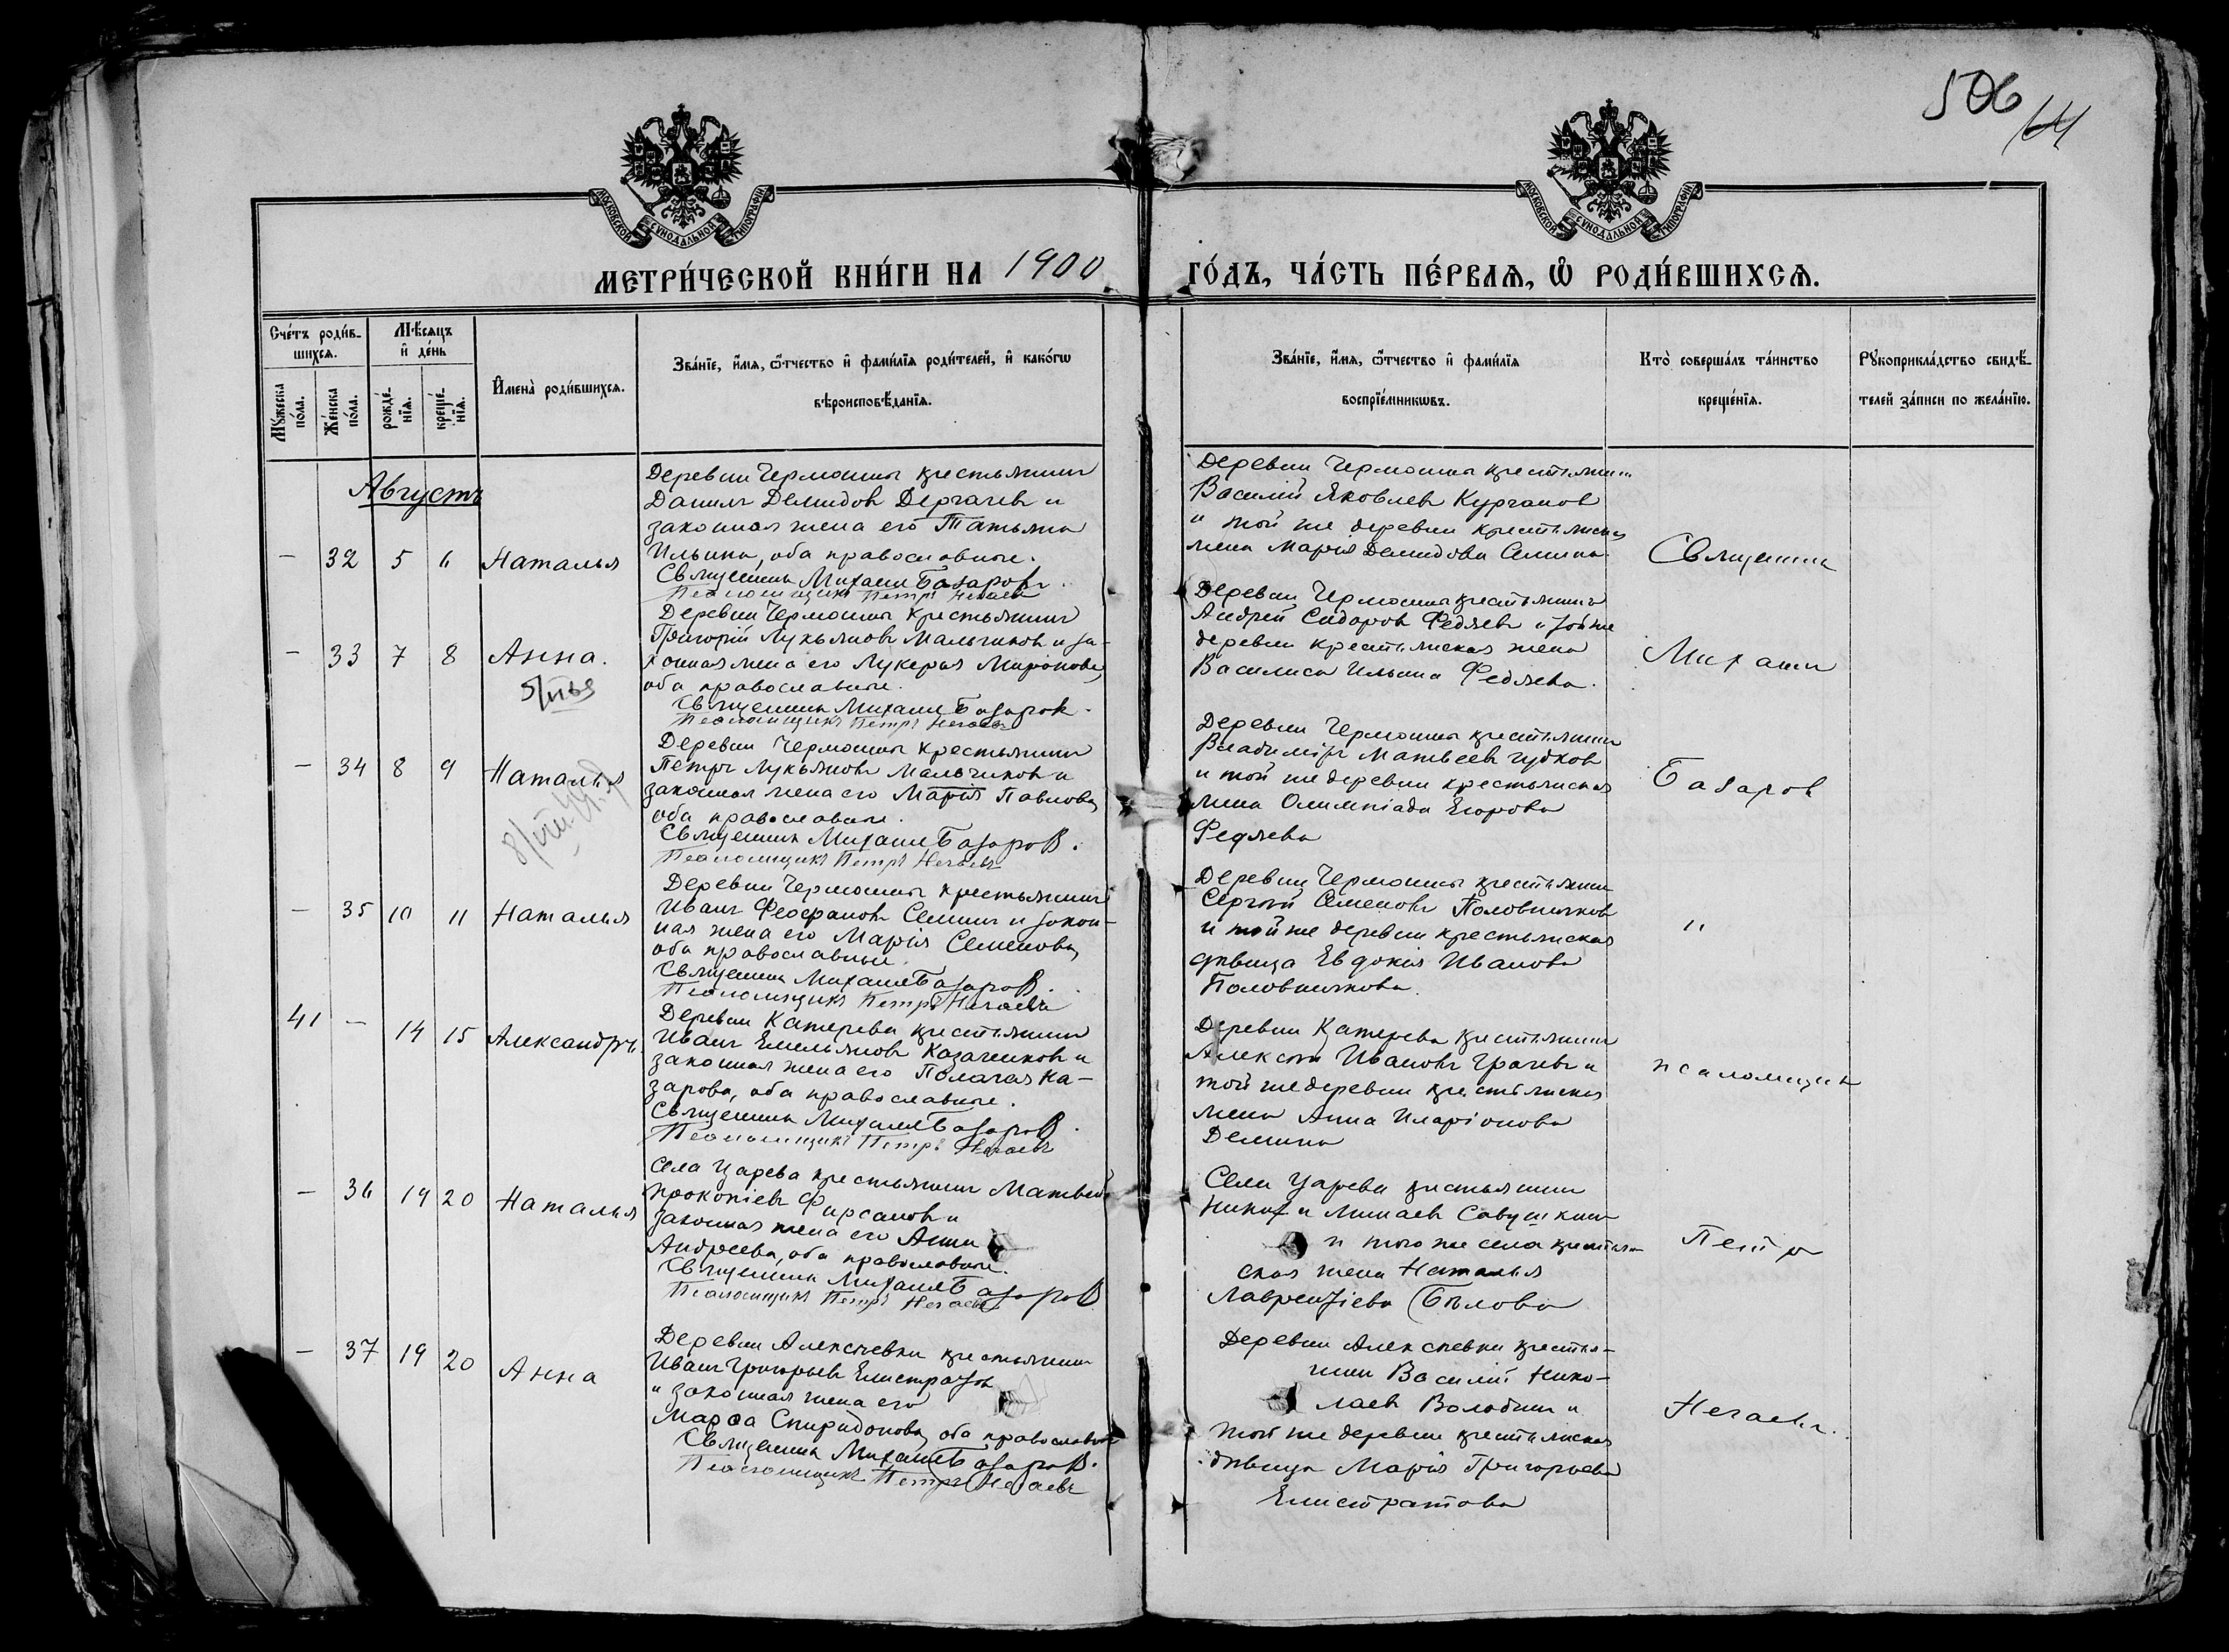 506
64
МОСКОВСКОЙ СУНОДАЛЬНОЙ ТИПОГРАФІИ
МОСКОВСКОЙ СУНОДАЛЬНОЙ ТИПОГРАФІИ
МЕТРИ́ЧЕСКОЙ КНИ́ГИ НА 1900 ГО́ДЪ, ЧА́СТЬ ПЕ́РВАѦ, Ѽ РОДИ́ВШИХСѦ.
Сче́тъ роди́в-
шихсѧ.
Мѣ́сяцъ
и҆ де́нь
Мꙋ́жеска
по́ла.
Же́нска
по́ла.
рожде́-
нїѧ.
креще́-
нїѧ.
И҆мена̀ роди́вшихсѧ.
Зва́нїе, и҆́мѧ, ѻ҆́тчество и҆ фами́лїѧ роди́телей, и҆ како́гѡ
вѣроисповѣ́данїѧ.
Зва́нїе, и҆́мѧ, ѻ҆́тчество и҆ фами́лїѧ
воспрїе́мникѡвъ.
Кто̀ соверша́лъ та́инство
креще́нїѧ.
Рꙋкоприкла́дство свидѣ́-
телей за́писи по жела́нїю.
Августъ
— 32 5 6 Наталья
Деревни Чермошны крестьянинъ
Данилъ Демидовъ Дергачевъ и
законная жена его Татьяна
Ильина, оба православные.
Священникъ Михаилъ Базаровъ.
Псаломщикъ Петръ Нечаевъ
Деревни Чермошны крестьянинъ
Василий Яковлевъ Кургановъ
и той же деревни крестьянская
жена Марія Демидова Семина
Священникъ
— 33 7 8 Анна.
Деревни Чермошны крестьянинъ
Григорій Лукьяновъ Мальчиковъ и за-
конная жена его Лукерья Миронова,
оба православные.
Священникъ Михаилъ Базаровъ.
Псаломщикъ Петръ Нечаевъ
Деревни Чермошны крестьянинъ
Андрей Сидоровъ Федяевъ и той же
деревни крестьянская жена
Василиса Ильина Федяева.
Михаилъ
— 34 8 9 Наталья
Деревни Чермошны крестьянинъ
Петръ Лукьяновъ Мальчиковъ и
законная жена его Марія Павлова,
оба православные.
Священникъ Михаилъ Базаровъ.
Псаломщикъ Петръ Нечаевъ
Деревни Чермошны крестьянинъ
Владиміръ Матвеевъ Гудковъ
и той же деревни крестьянская
жена Олимпіада Егорова
Федяева
Базаровъ
— 35 10 11 Наталья
Деревни Чермошны крестьянинъ
Иванъ Феофановъ Семинъ и закон-
ная жена его Марія Семенова,
оба православные.
Священникъ Михаилъ Базаровъ.
Псаломщикъ Петръ Нечаевъ
Деревни Чермошны крестьянинъ
Сергѣй Семеновъ Половинкинъ
и той же деревни крестьянская
дѣвица Евдокія Иванова
Половинкова
и
41 — 14 15 Александръ
Деревни Катерева крестьянинъ
Иванъ Емельяновъ Казаченковъ и
законная жена его Пелагея На-
зарова, оба православные.
Священникъ Михаилъ Базаровъ.
Псаломщикъ Петръ Нечаевъ
Деревни Катерева крестьянинъ
Алексѣй Ивановъ Грачевъ и
той же деревни крестьянская
жена Анна Иларіонова
Демина
псаломщикъ
— 36 19 20 Наталья
Села Царева крестьянинъ Матвей
Прокопіевъ Фирсановъ и
законная жена его Анна
Андреева, оба православные.
Священникъ Михаилъ Базаровъ
Псаломщикъ Петръ Нечаевъ
Села Царева крестьянинъ
Минаевъ Савушкинъ
и того же села крестьян-
ская жена Наталья
Лаврентіева Бѣлова
Петръ
— 37 19 20 Анна
Деревни Алексѣевки крестьянинъ
Иванъ Григорьевъ Елистратовъ
и законная жена его
Марѳа Спиридонова, оба православные
Священникъ Михаилъ Базаровъ.
Псаломщикъ Петръ Нечаевъ
Деревни Алексѣевки крестья-
нинъ Василій Нико-
лаевъ Володинъ и
той же деревни крестьянская
дѣвица Марія Григорьева
Елистратова
Нечаевъ.